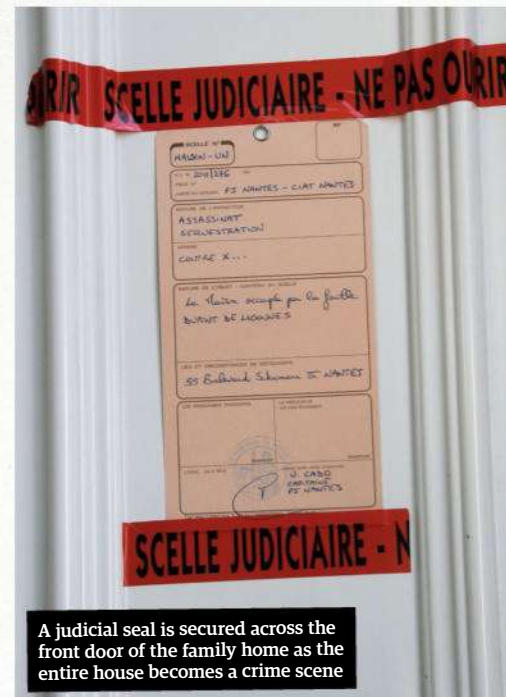 OUVRIR SCELLE JUDICIAIRE - NE PAS OUVRIR
SCELLE N°
MAISON - UN
2011/276
PJ NANTES - CIAT NANTES
ASSASSINAT
SEQUESTRATION
CONTRE X...
La Maison occupée par la famille
DUPONT DE LIGONNES
LIEU ET CIRCONSTANCES DE DECOUVERTE
55 Boulevard Schuman à NANTES
J. CABO
CAPITAINE
PJ NANTES
SCELLE JUDICIAIRE - N
A judicial seal is secured across the
front door of the family home as the
entire house becomes a crime scene